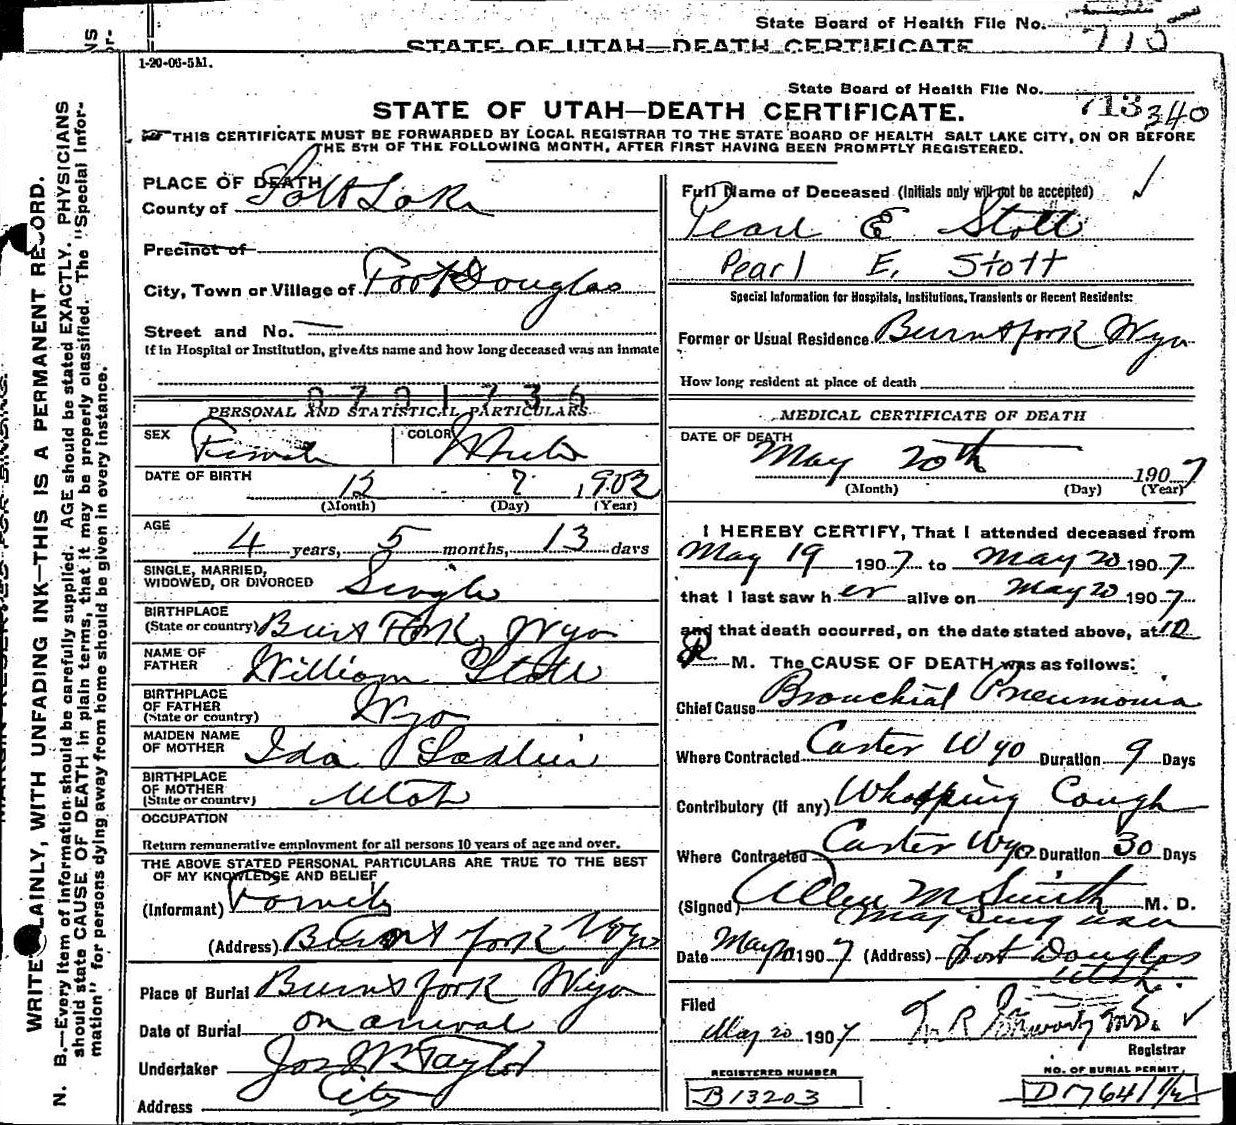 State Board of Health File No.
710
STATE OF UTAH—DEATH CERTIFICATE
1-20-06-5M.
State Board of Health File No. 713 340
STATE OF UTAH—DEATH CERTIFICATE.
THIS CERTIFICATE MUST BE FORWARDED BY LOCAL REGISTRAR TO THE STATE BOARD OF HEALTH SALT LAKE CITY, ON OR BEFORE
THE 5TH OF THE FOLLOWING MONTH, AFTER FIRST HAVING BEEN PROMPTLY REGISTERED.
WRITE PLAINLY, WITH UNFADING INK—THIS IS A PERMANENT RECORD.
N. B.—Every item of information should be carefully supplied. AGE should be stated EXACTLY. PHYSICIANS
should state CAUSE OF DEATH in plain terms, that it may be properly classified. The "Special Infor-
mation" for persons dying away from home should be given in every instance.
PLACE OF DEATH
County of Salt Lake
Precinct of
City, Town or Village of Fort Douglas
Street and No. —
If in Hospital or Institution, give its name and how long deceased was an inmate
0701736
PERSONAL AND STATISTICAL PARTICULARS
SEX Female COLOR White
DATE OF BIRTH 12 7 1902
(Month) (Day) (Year)
AGE 4 years, 5 months, 13 days
SINGLE, MARRIED,
WIDOWED, OR DIVORCED Single
BIRTHPLACE
(State or country) Burnt Fork, Wyo
NAME OF
FATHER William Stott
BIRTHPLACE
OF FATHER
(State or country) Wyo
MAIDEN NAME
OF MOTHER Ida
BIRTHPLACE
OF MOTHER
(State or country) Utah
OCCUPATION
Return remunerative employment for all persons 10 years of age and over.
THE ABOVE STATED PERSONAL PARTICULARS ARE TRUE TO THE BEST
OF MY KNOWLEDGE AND BELIEF
(Informant) Family
(Address) Burnt fork Wyo
Place of Burial Burnsfork Wyo
Date of Burial on arrival
Undertaker Jos Wm Taylor
Address City
Full Name of Deceased (Initials only will not be accepted)
Pearl E Stott
Pearl E. Stott
Special Information for Hospitals, Institutions, Transients or Recent Residents:
Former or Usual Residence Burntfork Wyo
How long resident at place of death
MEDICAL CERTIFICATE OF DEATH
DATE OF DEATH
May 20th 1907
(Month) (Day) (Year)
I HEREBY CERTIFY, That I attended deceased from
May 19 1907 to May 20 1907
that I last saw her alive on May 20 1907
and that death occurred, on the date stated above, at 12
P M. The CAUSE OF DEATH was as follows:
Chief Cause Bronchial Pneumonia
Where Contracted Carter Wyo Duration 9 Days
Contributory (if any) Whooping Cough
Where Contracted Carter Wyo Duration 30 Days
(Signed) Allen M Smith M. D.
Maj Surg USA
Date May 20 1907 (Address) Fort Douglas
Utah.
Filed
May 20 1907
Registrar
REGISTERED NUMBER
B13203
NO. OF BURIAL PERMIT
D17641 1/2